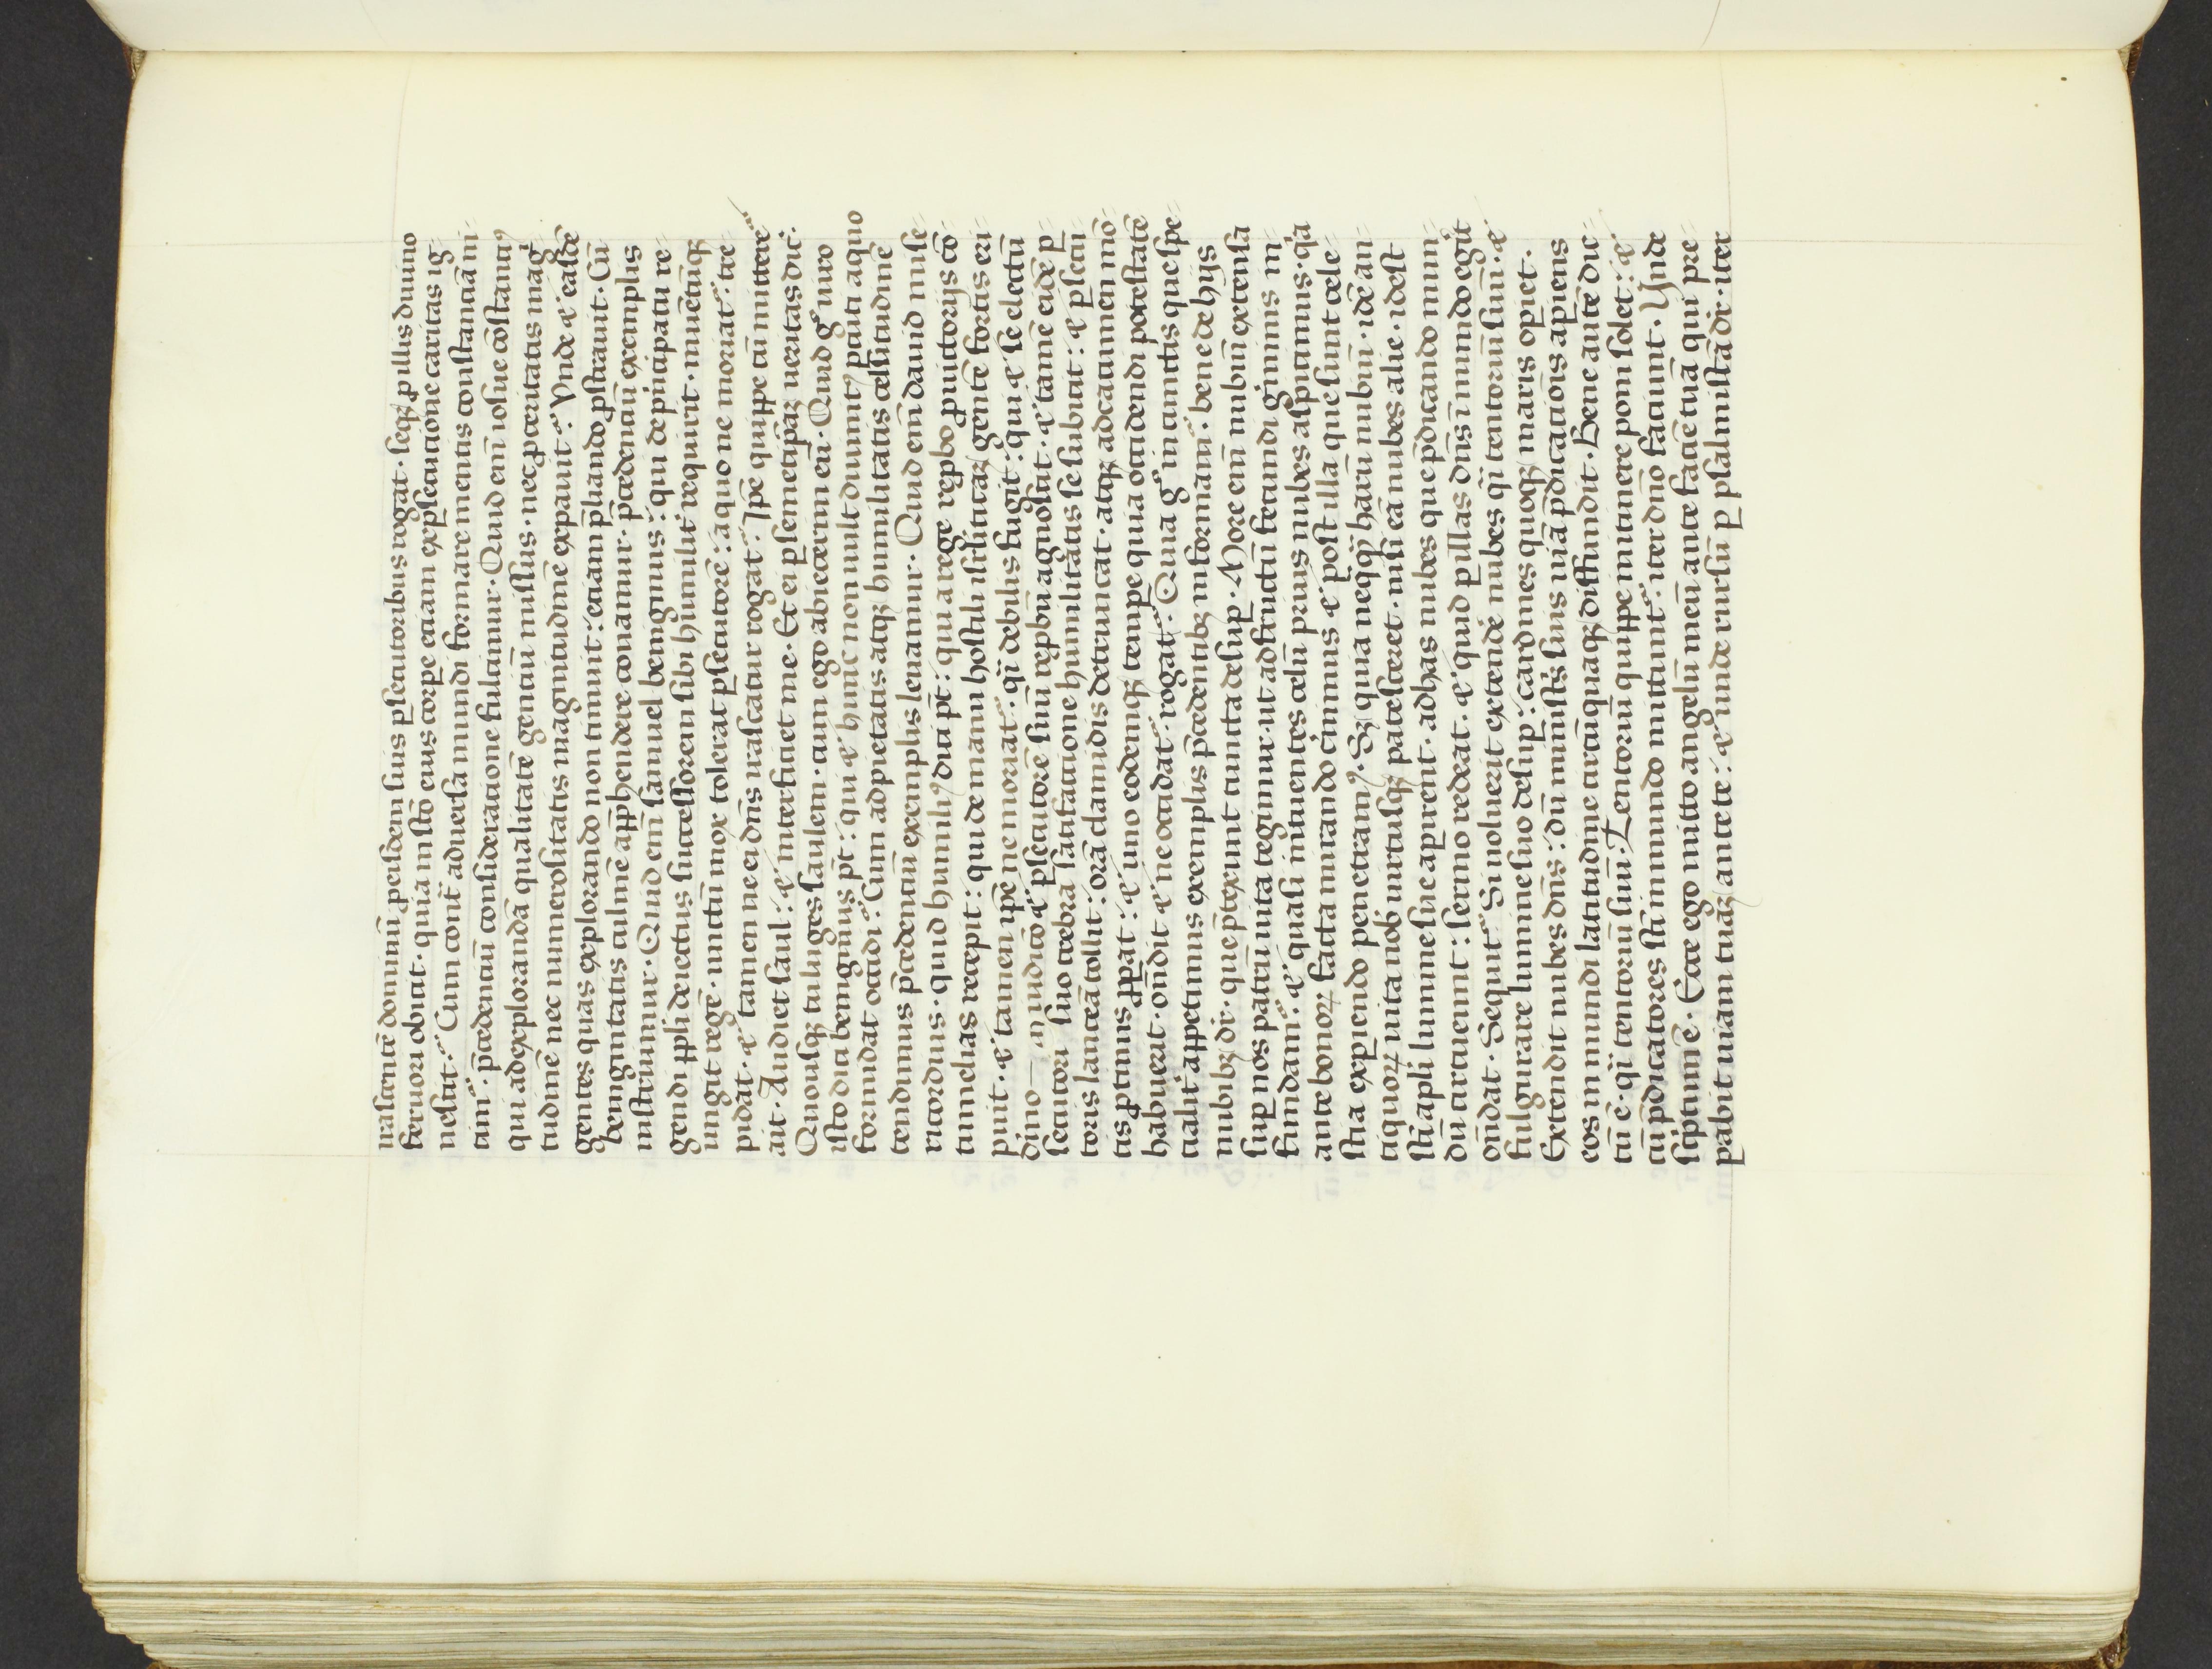 nascentē dominū ꝓ eisdem suis ꝑsecutoribus rogat. seqꝫ ꝓ illis diuino
feruori obuiat. quia in isto eius corpe eciam ex ꝑsecucione caritas ig
nescit. Cum cont̄ aduersa mundi formare mentis constanciā ni
tim̄. p̄cedenciū consideracione fulcimur. Quid eni iosue cōstancꝰ
qui ad explorandā qualitatē genciū missus. nec ꝓceritatis mag
tudinē nec numerositatis magnitudinē expauit. Vnde ⁊ easdē
gentes quas explorando non timuit: eciam p̄liando ꝓstrauit. Cū
benignitatis culmē app̄hendere conamur. p̄cedenciū exemplis
instruimur. Quid em̄ samuel benignius: qui de principatu re
gendi ppli deiectus successorem sibi humilit̄ requirit. inuentūqꝫ
ungit regē. unctū mox tolerat ꝑsecutorē: a quo ne moriat̄. tre
pidat. ⁊ tamen ne ei dn̄s irascatur rogat. Ip̄e quippe cū mittere
ait. Audiet saul: ⁊ interficiet me. Et ei ꝑ semetip̄aꝫ ueritas dic̄.
Quousqꝫ tu luges saulem. cum ego abiecerim eū. Quid g̊ uiro
isto dici benignius pt̄: qui ⁊ hunc non uult diuinitꝰ puniri a quo
formidat occidi. Cum ad pietatis atqꝫ humilitatis celsitudinē
tendimus p̄cedenciū exemplis leuamur. Quid em̄ dauid mise
ricordius. quid humiliꝰ dici pt̄: qui a rege reꝓbo ꝓ uictorijs cō
tumelias recepit: qui de manu hostili isrliticaꝫ gentē fortis eri
puit. ⁊ tamen ip̄e ne moriat̄. qi debilis fugit: qui ⁊ se electū
dīno iudicō ⁊ ꝑsecutorē suū reꝓbū agnoscit. ⁊ tamē eidē ꝑ
secutori suo crebra satisfactione humilitatis se subicit: ⁊ ꝑsecu
toris lanceā tollit: orā clamidis detruncat. atqꝫ ad cacumen mō
tis ꝓtinus ꝓpat: ⁊ uno eodemqꝫ tempe quia occidendi potestatē
habuerit. on̄dit ⁊ ne occidat. rogat. Quia g̊ in cunctis que spe
cialit̄ appetimus exemplis p̄cedentibꝫ informam̄. bene de hijs
nubibꝫ dr̄. que p̄texunt cuncta desup. More eni nubiū extensa
sup nos patrū uita tegimur. ut ad fructū fecundi g̊minis in
fundam̄. ⁊ quasi intuentes celū prius nubes aspicimus. qꝛ
ante bonoꝝ facta mirando cernimus ⁊ post illa que sunt cele
stia expiendo penetramꝰ. Sꝫ quia neqꝗ harū nubiū. id ē an
tiquoꝝ uita nob̄ uirtusqꝫ patesceret. nisi eā nubes alie. id est
sc̄i apli lumine sue aꝑirent. ad has nubes que p̄dicando mun
dū circuiennt: sermo redeat. ⁊ quid ꝑ illas dn̄s ī mundo egit
on̄dat. Sequit̄. Si uoluerit extende nubes qi tentoriū suū. ⁊
fulgurare lumine suo desup: cardines quoqꝫ maris oꝑiet.
Extendit nubes dn̄s: dū ministꝭ suis uiā p̄dicacōis aꝑiens
eos in mundi latitudine circūquaqꝫ diffundit. Bene autē dic
tū ē. qi tentoriū suū. Tentoriū quippe in itinere poni solet: ⁊
cū p̄dicatores sc̄i in mundo mittunt̄. iter dn̄o faciunt. Vnde
sc̄iptum ē. Ecce ego mitto angelū meū ante faciē tuā qui pre
ꝑabit uiam tuaꝫ ante te: ⁊ unde rursū ꝑ psalmistā dr̄. iter